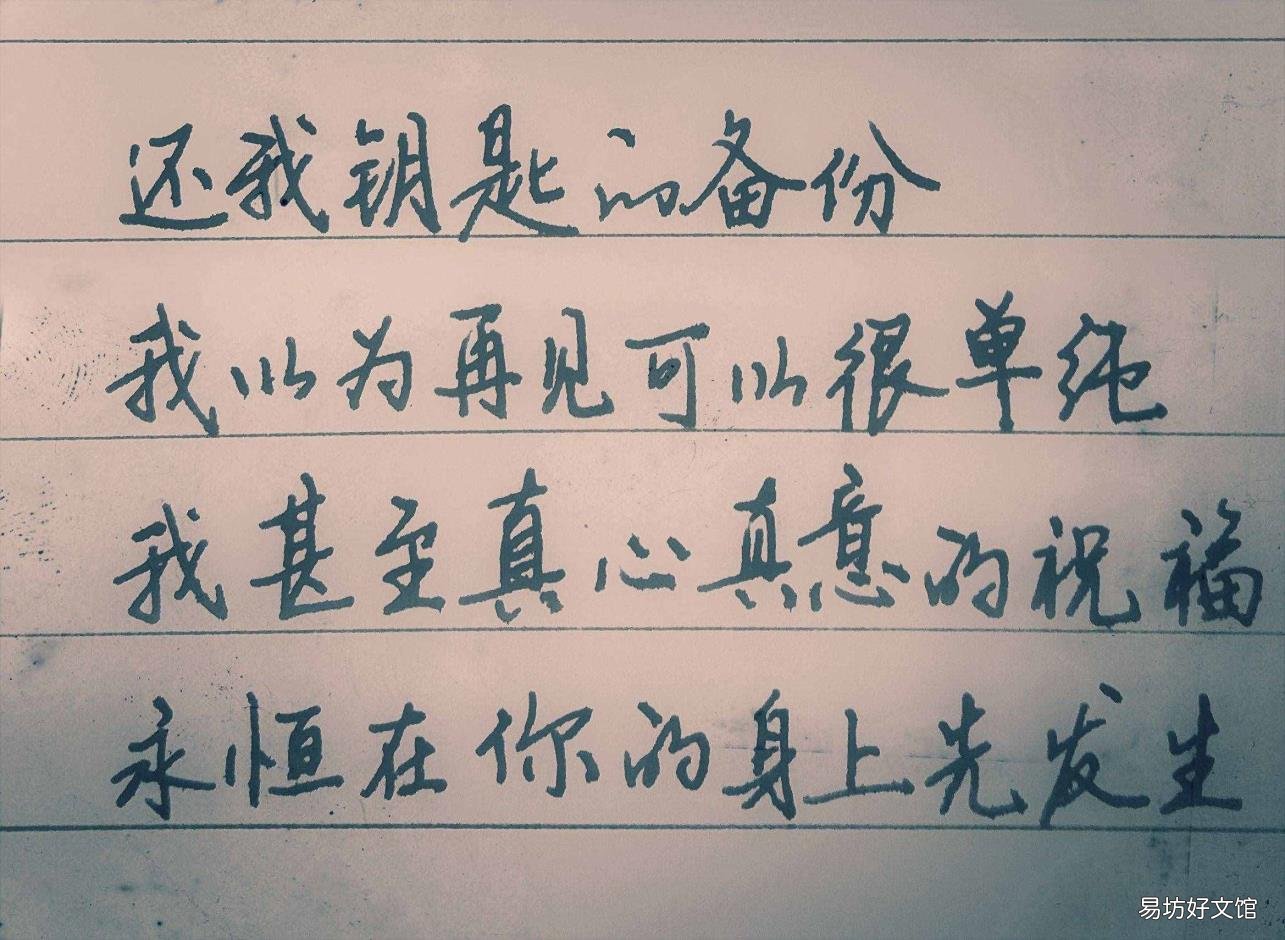 还我钥匙的备份
我以为再见可以很单纯
我甚至真心真意的祝福
永恒在你的身上先发生
易坊好文馆